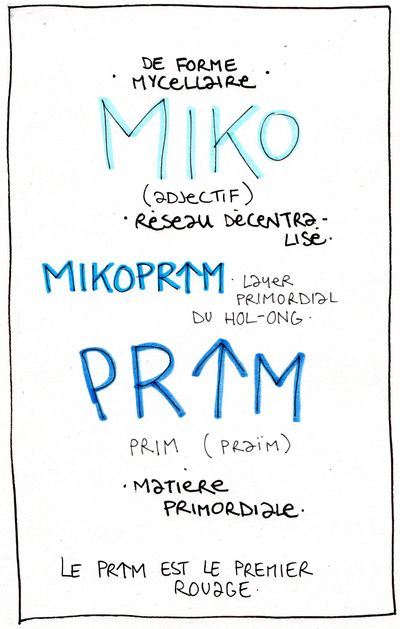 DE FORME
· MYCELLAIRE ·
MIKO
(ADJECTIF)
· RÉSEAU DÉCENTRA-
LISÉ ·
MIKOPR↑M · LAYER
PRIMORDIAL
DU HOL-ONG ·
PR↑M
PRIM (PRAÏM)
· MATIÈRE
PRIMORDIALE ·
LE PR↑M EST LE PREMIER
ROUAGE ·